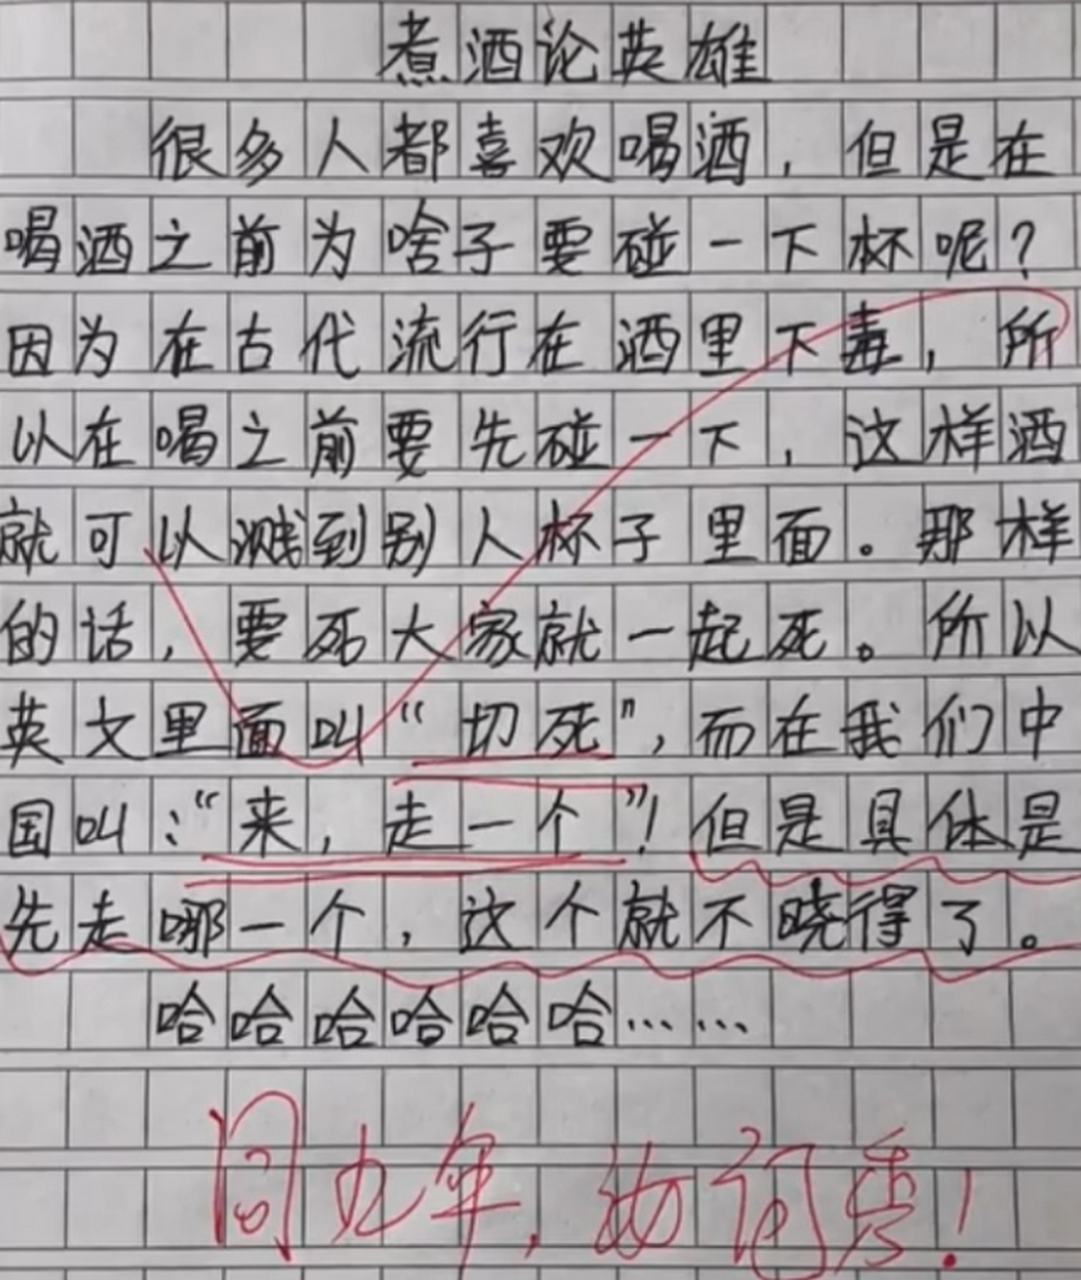 煮酒论英雄
很多人都喜欢喝酒，但是在
喝酒之前为啥子要碰一下杯呢？
因为在古代流行在酒里下毒，所
以在喝之前要先碰一下，这样酒
就可以溅到别人杯子里面。那样
的话，要死大家就一起死。所以
英文里面叫“切死”，而在我们中
国叫：“来，走一个”！但是具体是
先走哪一个，这个就不晓得了。
哈哈哈哈哈哈……
同九年，汝何秀！